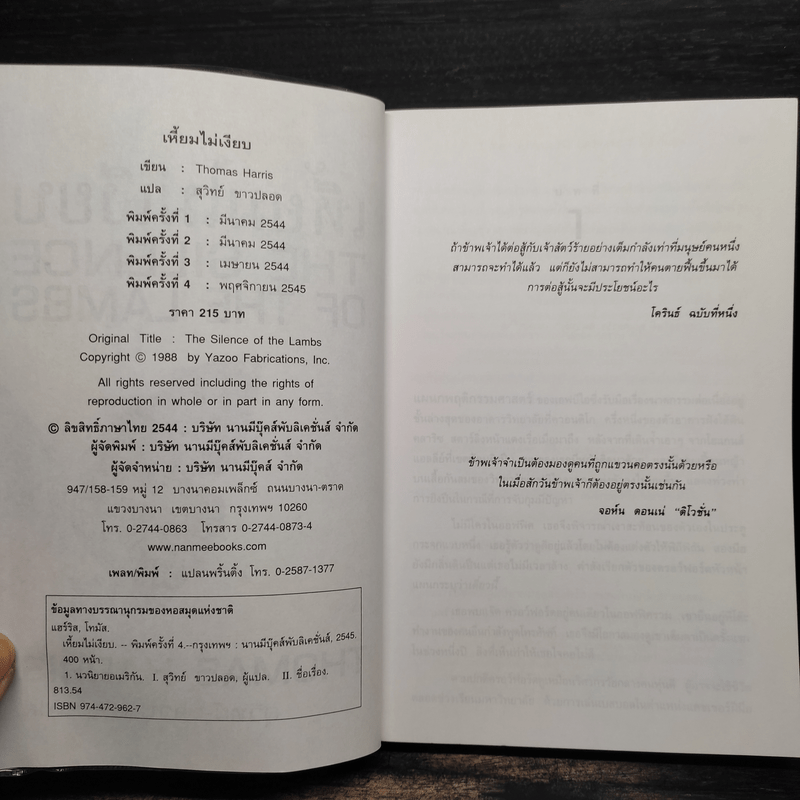 เหี้ยมไม่เงียบ
เขียน : Thomas Harris
แปล : สุวิทย์ ขาวปลอด
พิมพ์ครั้งที่ 1 : มีนาคม 2544
พิมพ์ครั้งที่ 2 : มีนาคม 2544
พิมพ์ครั้งที่ 3 : เมษายน 2544
พิมพ์ครั้งที่ 4 : พฤศจิกายน 2545
ราคา 215 บาท
Original Title : The Silence of the Lambs
Copyright © 1988 by Yazoo Fabrications, Inc.
All rights reserved including the rights of
reproduction in whole or in part in any form.
© ลิขสิทธิ์ภาษาไทย 2544 : บริษัท นานมีบุ๊คส์พับลิเคชั่นส์ จำกัด
ผู้จัดพิมพ์ : บริษัท นานมีบุ๊คส์พับลิเคชั่นส์ จำกัด
ผู้จัดจำหน่าย : บริษัท นานมีบุ๊คส์ จำกัด
947/158-159 หมู่ 12 บางนาคอมเพล็กซ์ ถนนบางนา-ตราด
แขวงบางนา เขตบางนา กรุงเทพฯ 10260
โทร. 0-2744-0863 โทรสาร 0-2744-0873-4
www.nanmeebooks.com
เพลท/พิมพ์ : แปลนพริ้นติ้ง โทร. 0-2587-1377
ข้อมูลทางบรรณานุกรมของหอสมุดแห่งชาติ
แฮร์ริส, โทมัส.
เหี้ยมไม่เงียบ. -- พิมพ์ครั้งที่ 4.--กรุงเทพฯ : นานมีบุ๊คส์พับลิเคชั่นส์, 2545.
400 หน้า.
1. นวนิยายอเมริกัน. I. สุวิทย์ ขาวปลอด, ผู้แปล. II. ชื่อเรื่อง.
813.54
ISBN 974-472-962-7
ถ้าข้าพเจ้าได้ต่อสู้กับเจ้าสัตว์ร้ายอย่างเต็มกำลังเท่าที่มนุษย์คนหนึ่ง
สามารถจะทำได้แล้ว แต่ก็ยังไม่สามารถทำให้คนตายฟื้นขึ้นมาได้
การต่อสู้นั้นจะมีประโยชน์อะไร
โครินธ์ ฉบับที่หนึ่ง
ข้าพเจ้าจำเป็นต้องมองดูคนที่ถูกแขวนคอตรงนั้นด้วยหรือ
ในเมื่อสักวันข้าพเจ้าก็ต้องอยู่ตรงนั้นเช่นกัน
จอห์น ดอนเน่ "ดิโวชั่น"